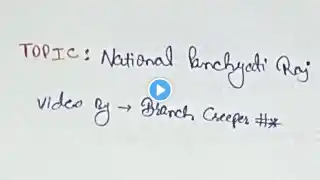 TOPIC: National Panchyati Raj
Video By → Branch Creeper #*